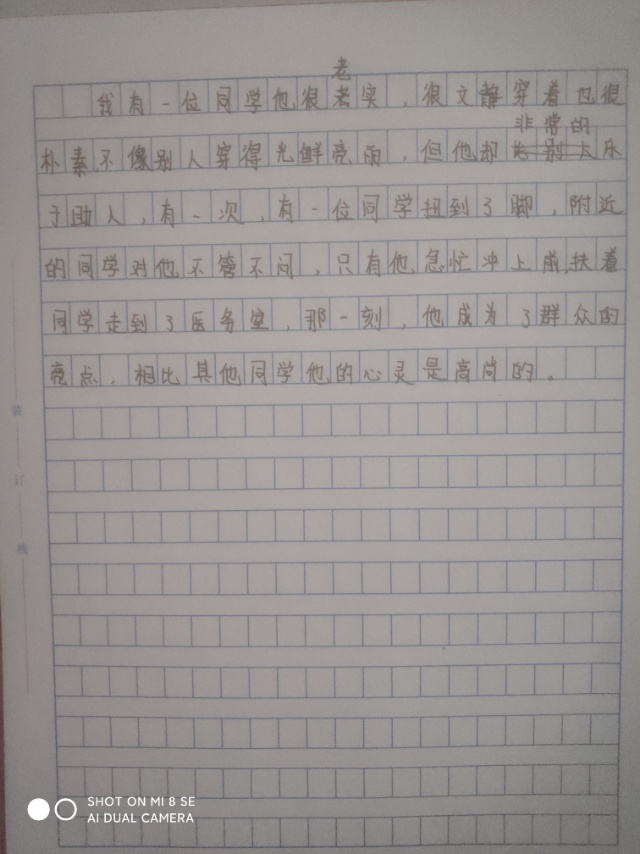 老
我有一位同学他很老实，很文静穿着也很
非常的
朴素不像别人穿得光鲜亮雨，但他却乐
于助人，有一次，有一位同学扭到了脚，附近
的同学对他不管不问，只有他急忙冲上前扶着
同学走到了医务室，那一刻，他成为了群众的
亮点，相比其他同学他的心灵是高尚的。
装
订
线
SHOT ON MI 8 SE
AI DUAL CAMERA